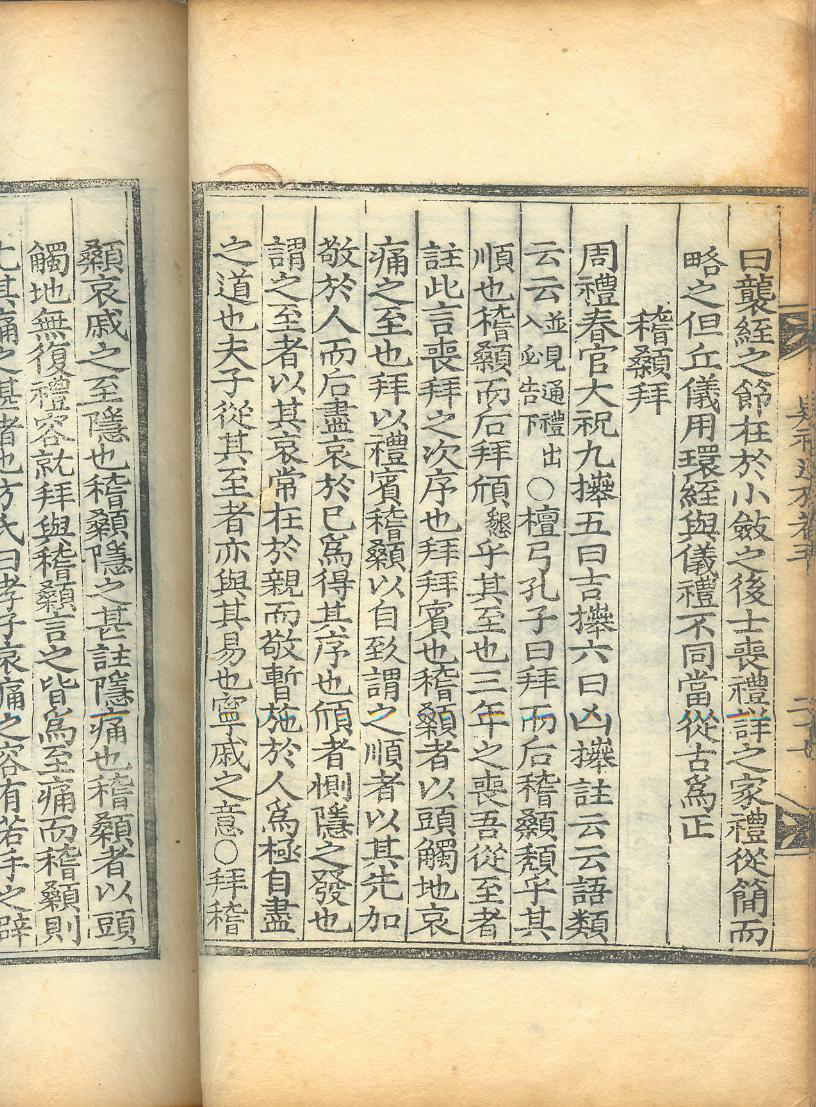 曰襲絰之節在於小斂之後士喪禮詳之家禮從簡而
略之但丘儀用環絰與儀禮不同當從古爲正
稽顙拜
周禮春官大祝九㩯五曰吉㩯六曰凶㩯註云云語類
云云並見通禮出入必告下○檀弓孔子曰拜而后稽顙頹乎其
順也稽顙而后拜頎懇乎其至也三年之喪吾從至者
註此言喪拜之次序也拜拜賓也稽顙者以頭觸地哀
痛之至也拜以禮賓稽顙以自致謂之順者以其先加
敬於人而后盡哀於已爲得其序也頎者惻隱之發也
謂之至者以其哀常在於親而敬暫施於人爲極自盡
之道也夫子從其至者亦與其易也寧戚之意○拜稽
顙哀戚之至隱也稽顙隱之甚註隱痛也稽顙者以頭
觸地無復禮容就拜與稽顙言之皆爲至痛而稽顙則
尤其痛之甚者也方氏曰孝子哀痛之容有若手之辟